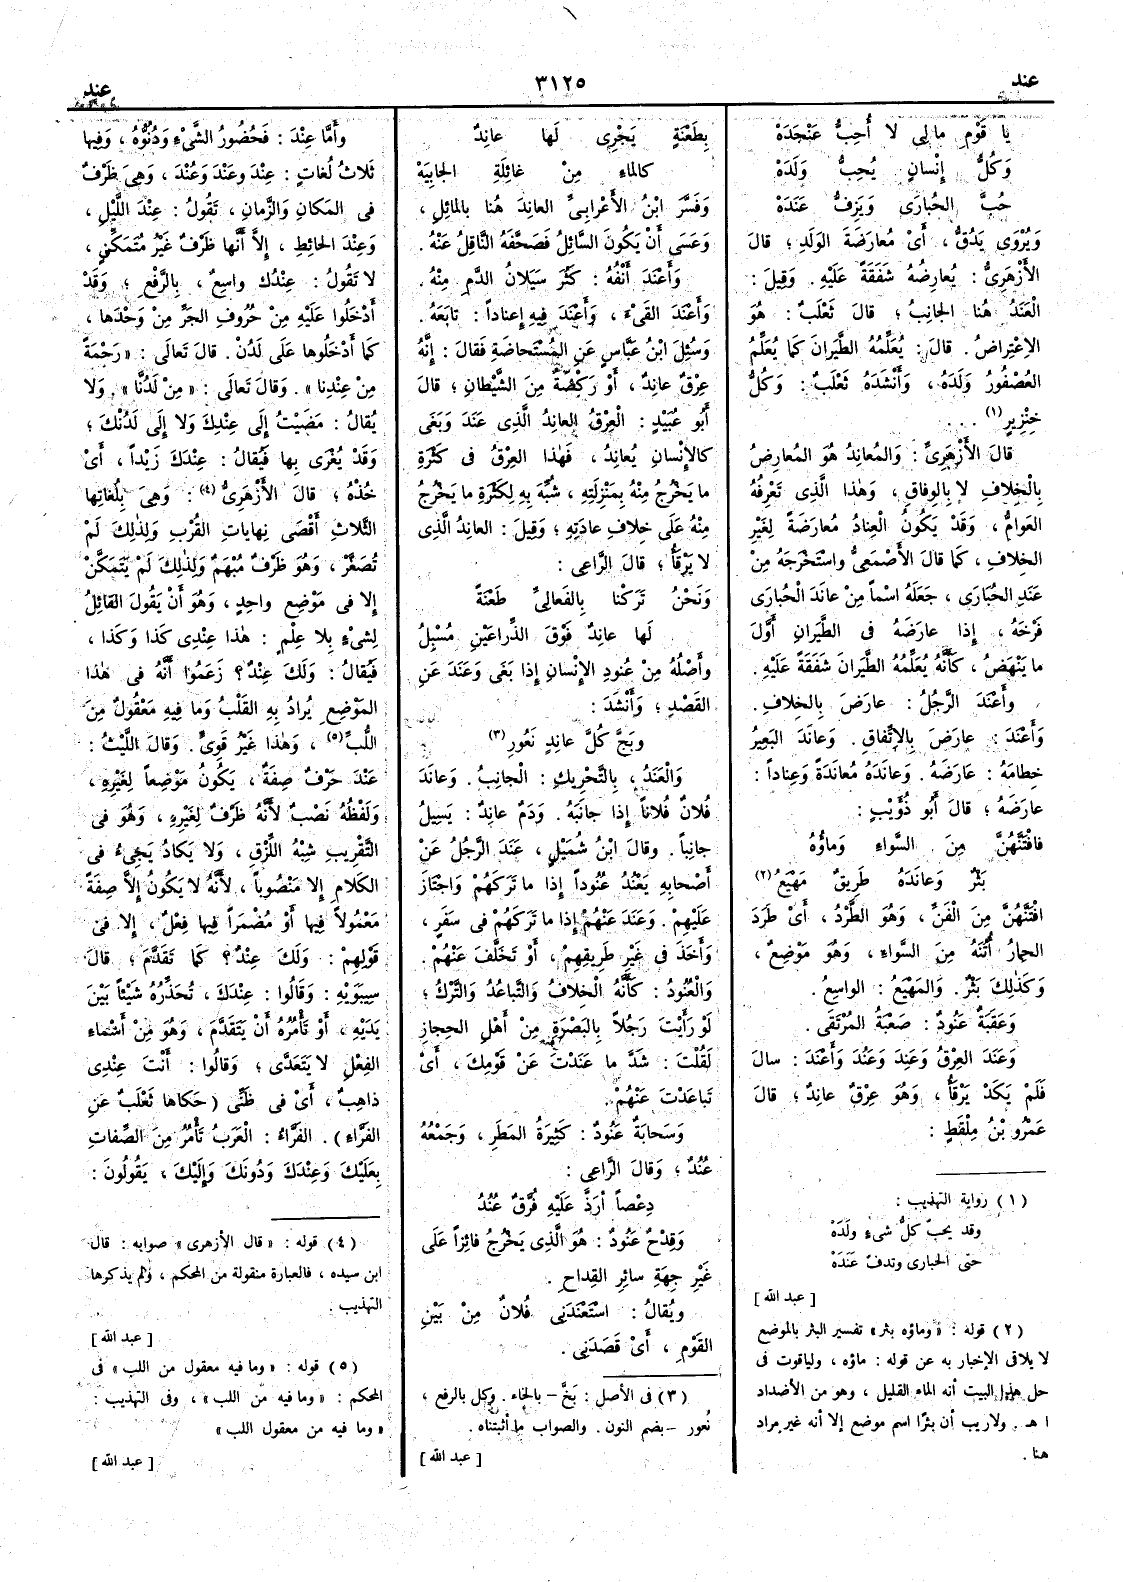 عند
٣١٢٥
عند
يا قَوْمِ مالِى لا أُحِبُّ عَنْجَدَهْ
وَكُلُّ إِنْسانٍ يُحِبُّ وَلَدَهْ
حُبَّ الحُبارَى وَيَزِفُّ عَنَدَهْ
وَيُرْوَى يَدُقُّ ، أَىْ مُعارَضَةَ الوَلَدِ ؛ قالَ
الأَزْهَرِىُّ : يُعارِضُهُ شَفَقَةً عَلَيْهِ . وَقِيلَ :
الْعَنَدُ هُنا الجانِبُ ؛ قالَ ثَعْلَبٌ : هُوَ
الاِعْتِراضُ . قالَ : يُعَلِّمُهُ الطَّيَرانَ كَما يُعَلِّمُ
العُصْفُورُ وَلَدَهُ ، وَأَنْشَدَهُ ثَعْلَبٌ : وَكُلُّ
خِنْزِيرٍ (١) . . .
قالَ الأَزْهَرِىُّ : وَالمُعانِدُ هُوَ المُعارِضُ
بِالْخِلافِ لا بِالوِفاقِ ، وَهٰذا الَّذِى تَعْرِفُهُ
العَوامُّ ، وَقَدْ يَكُونُ العِنادُ مُعارَضَةً لِغَيْرِ
الخِلافِ ، كَما قالَ الأَصْمَعِىُّ واسْتَخْرَجَهُ مِنْ
عَنَدِ الحُبارَى ، جَعَلَهُ اسْماً مِنْ عانَدَ الْحُبارَى
فَرْخَهُ ، إِذا عارَضَهُ فى الطَّيَرانِ أَوَّلَ
ما يَنْهَضُ ، كَأَنَّهُ يُعَلِّمُهُ الطَّيَرانَ شَفَقَةً عَلَيْهِ .
وَأَعْنَدَ الرَّجُلُ : عارَضَ بِالخِلافِ .
وَأَعْنَدَ : عارَضَ بِالاِتِّفاقِ . وَعانَدَ البَعِيرُ
خِطامَهُ : عَارَضَهُ . وَعانَدَهُ مُعانَدَةً وَعِناداً :
عارَضَهُ ؛ قالَ أَبُو ذُؤَيْبٍ :
فافْتَنَّهُنَّ مِنَ السَّواءِ وَماؤُهُ
بَثْرٌ وَعانَدَهُ طَرِيقٌ مَهْيَعُ (٢)
افْتَنَّهُنَّ مِنَ الْفَنِّ ، وَهُوَ الطَّرْدُ ، أَىْ طَرَدَ
الحِمارُ أُتُنَهُ مِنَ السَّواءِ ، وَهُوَ مَوْضِعٌ ،
وَكَذٰلِكَ بَثْرٌ . وَالمَهْيَعُ : الواسِعُ .
وَعَقَبَةٌ عَنُودٌ : صَعْبَةُ المُرْتَقَى .
وَعَنَدَ العِرْقُ وَعَنِدَ وَعَنُدَ وَأَعْنَدَ : سالَ
فَلَمْ يَكَدْ يَرْقَأُ ، وَهُوَ عِرْقٌ عانِدٌ ؛ قالَ
عَمْرُو بْنُ مِلْقَطٍ :
(١) رواية التهذيب :
وقد يحبّ كلُّ شىءٍ ولَدَهْ
حتى الحبارى وتدفّ عَنَدَهْ
[عبد الله]
(٢) قوله : «وماؤه بثر» تفسير البثر بالموضع
لا يلاقى الإخبار به عن قوله : ماؤه ، ولياقوت فى
حل هذا البيت أنه الماء القليل ، وهو من الأضداد
ا هـ . ولا ريب أن بثرًا اسم موضع إلا أنه غير مراد
هنا .
بِطَعْنَةٍ يَجْرِى لَها عانِدٌ
كالماءِ مِنْ غائِلَةِ الجابِيَهْ
وَفَسَّرَ ابْنُ الأَعْرابِىِّ العانِدَ هُنا بِالمائِلِ ،
وَعَسَى أَنْ يَكُونَ السَّائِلُ فَصَحَّفَهُ النَّاقِلُ عَنْهُ .
وَأَعْنَدَ أَنْفُهُ : كَثُرَ سَيَلانُ الدَّمِ مِنْهُ .
وَأَعْنَدَ القَىْءَ ، وَأَعْنَدَ فِيهِ إِعْناداً : تابَعَهُ .
وَسُئِلَ ابْنُ عَبَّاسٍ عَنِ المُسْتَحاضَةِ فَقالَ : إِنَّهُ
عِرْقٌ عانِدٌ ، أَوْ رَكْضَةٌ مِنَ الشَّيْطانِ ؛ قالَ
أَبُو عُبَيْدٍ : الْعِرْقُ العانِدُ الَّذِى عَنَدَ وَبَغَى
كالإِنْسانِ يُعانِدُ ، فَهٰذا العِرْقُ فى كَثْرَةِ
ما يَخْرُجُ مِنْهُ بِمَنْزِلَتِهِ ، شُبِّهَ بِهِ لِكَثْرَةِ ما يَخْرُجُ
مِنْهُ عَلَى خِلافِ عادَتِهِ ؛ وَقِيلَ : العانِدُ الَّذِى
لا يَرْقَأُ ؛ قالَ الرَّاعِى :
وَنَحْنُ تَرَكْنا بِالفَعالِىِّ طَعْنَةً
لَها عانِدٌ فَوْقَ الذِّراعَيْنِ مُسْبِلُ
وأَصْلُهُ مِنْ عُنُودِ الإِنْسانِ إِذا بَغَى وَعَنَدَ عَنِ
القَصْدِ ؛ وَأَنْشَدَ :
وبَجَّ كُلَّ عانِدٍ نَعُورِ (٣)
وَالْعَنَدُ ، بِالتَّحْرِيكِ : الْجانِبُ . وَعانَدَ
فُلانٌ فُلاناً إِذا جانَبَهُ . وَدَمٌ عانِدٌ : يَسِيلُ
جانِباً . وقالَ ابْنُ شُمَيْلٍ ، عَنَدَ الرَّجُلُ عَنْ
أَصْحابِهِ يَعْنُدُ عُنُوداً إِذا ما تَرَكَهُمْ وَاجْتازَ
عَلَيْهِمْ . وَعَنَدَ عَنْهُمْ إِذا ما تَرَكَهُمْ فى سَفَرٍ ،
وَأَخَذَ فى غَيْرِ طَرِيقِهِمْ ، أَوْ تَخَلَّفَ عَنْهُمْ .
وَالْعُنُودُ : كَأَنَّهُ الْخِلافُ وَالتَّباعُدُ وَالتَّرْكُ ؛
لَوْ رَأَيْتَ رَجُلاً بِالبَصْرَةِ مِنْ أَهْلِ الحِجازِ
لَقُلْتَ : شَدَّ ما عَنَدْتَ عَنْ قَوْمِكَ ، أَىْ
تَباعَدْتَ عَنْهُمْ .
وَسَحابَةٌ عَنُودٌ : كَثِيرَةُ المَطَرِ ، وَجَمْعُهُ
عُنُدٌ ؛ وَقالَ الرَّاعِى :
دِعْصاً أَرَذَّ عَلَيْهِ فُرَّقٌ عُنُدُ
وَقِدْحٌ عَنُودٌ : هُوَ الَّذِى يَخْرُجُ فائِزاً عَلَى
غَيْرِ جِهَةِ سائِرِ القِداحِ .
ويُقالُ : اسْتَعْنَدَنِى فُلانٌ مِنْ بَيْنِ
القَوْمِ ، أَىْ قَصَدَنِى .
(٣) فى الأصل : بَخَّ – بالخاء . وكل بالرفع ،
نُعور – بضم النون . والصواب ما أثبتناه .
[عبد الله]
وأَمَّا عِنْدَ : فَحُضُورُ الشَّىْءِ وَدُنُوُّهُ ، وَفِيها
ثَلاثُ لُغاتٍ : عِنْدَ وعَنْدَ وَعُنْدَ ، وَهِىَ ظَرْفٌ
فى المَكانِ وَالزَّمانِ ، تَقُولُ : عِنْدَ اللَّيْلِ ،
وَعِنْدَ الحائِطِ ، إِلاَّ أَنَّها ظَرْفٌ غَيْرُ مُتَمَكِّنٍ ،
لا تَقُولُ : عِنْدُك واسِعٌ ، بِالرَّفْعِ ؛ وَقَدْ
أَدْخَلُوا عَلَيْهِ مِنْ حُرُوفِ الجَرِّ مِنْ وَحْدَها ،
كَما أَدْخَلُوها عَلَى لَدُنْ . قالَ تَعالَى : «رَحْمَةً
مِنْ عِنْدِنا» . وَقالَ تَعالَى : «مِنْ لَدُنَّا» . وَلا
يُقالُ : مَضَيْتُ إِلَى عِنْدِكَ وَلا إِلَى لَدُنْكَ ؛
وَقَدْ يُغْرَى بِها فَيُقالُ : عِنْدَكَ زَيْداً ، أَىْ
خُذْهُ ؛ قالَ الأَزْهَرِىُّ (٤) : وَهِىَ بِلُغاتِها
الثَّلاثِ أَقْصَى نِهاياتِ القُرْبِ وَلِذٰلِكَ لَمْ
تُصَغَّرْ ، وَهُوَ ظَرْفٌ مُبْهَمٌ وَلِذٰلِكَ لَمْ يَتَمَكَّنْ
إِلا فى مَوْضِعٍ واحِدٍ ، وَهُوَ أَنْ يَقُولَ القائِلُ
لِشَىْءٍ بِلا عِلْمٍ : هٰذا عِنْدِى كَذا وَكَذا ،
فَيُقالُ : وَلَكَ عِنْدٌ؟ زَعَمُوا أَنَّهُ فى هٰذا
المَوْضِعِ يُرادُ بِهِ القَلْبُ وَما فِيهِ مَعْقُولٌ مِنَ
اللُّبِّ (٥) ، وَهٰذا غَيْرُ قَوِىٍّ . وَقالَ اللَّيْثُ :
عِنْدَ حَرْفٌ صِفَةٌ ، يَكُونُ مَوْضِعاً لِغَيْرِهِ ،
وَلَفْظُهُ نَصْبٌ لأَنَّهُ ظَرْفٌ لِغَيْرِهِ ، وَهُوَ فى
التَّقْرِيبِ شِبْهُ اللِّزْقِ ، وَلا يَكادُ يَجِىءُ فى
الكَلامِ إِلا مَنْصُوباً ، لأَنَّهُ لا يَكُونُ إِلاَّ صِفَةً
مَعْمُولاً فِيها أَوْ مُضْمَراً فِيها فِعْلٌ ، إِلا فى
قَوْلِهِمْ : وَلَكَ عِنْدٌ؟ كَما تَقَدَّمَ ؛ قالَ
سِيبَوَيْهِ : وَقالُوا : عِنْدَكَ ، تُحَذِّرُهُ شَيْئاً بَيْنَ
يَدَيْهِ ، أَوْ تَأْمُرُهُ أَنْ يَتَقَدَّمَ ، وَهُوَ مِنْ أَسْماءِ
الفِعْلِ لا يَتَعَدَّى ؛ وَقالُوا : أَنْتَ عِنْدِى
ذاهِبٌ ، أَىْ فى ظَنِّى (حَكاها ثَعْلَبٌ عَنِ
الفَرَّاءِ) . الفَرَّاءُ : الْعَرَبُ تَأْمُرُ مِنَ الصِّفاتِ
بِعَلَيْكَ وَعِنْدَكَ وَدُونَكَ وَإِلَيْكَ ، يَقُولُونَ :
(٤) قوله : «قال الأزهرى» صوابه : قال
ابن سيده ، فالعبارة منقولة من المحكم ، ولم يذكرها
التهذيب .
[عبد الله]
(٥) قوله : «وما فيه معقول من اللب» فى
المحكم : «وما فيه من اللب» ، وفى التهذيب :
«وما فيه من معقول اللب»
[عبد الله]